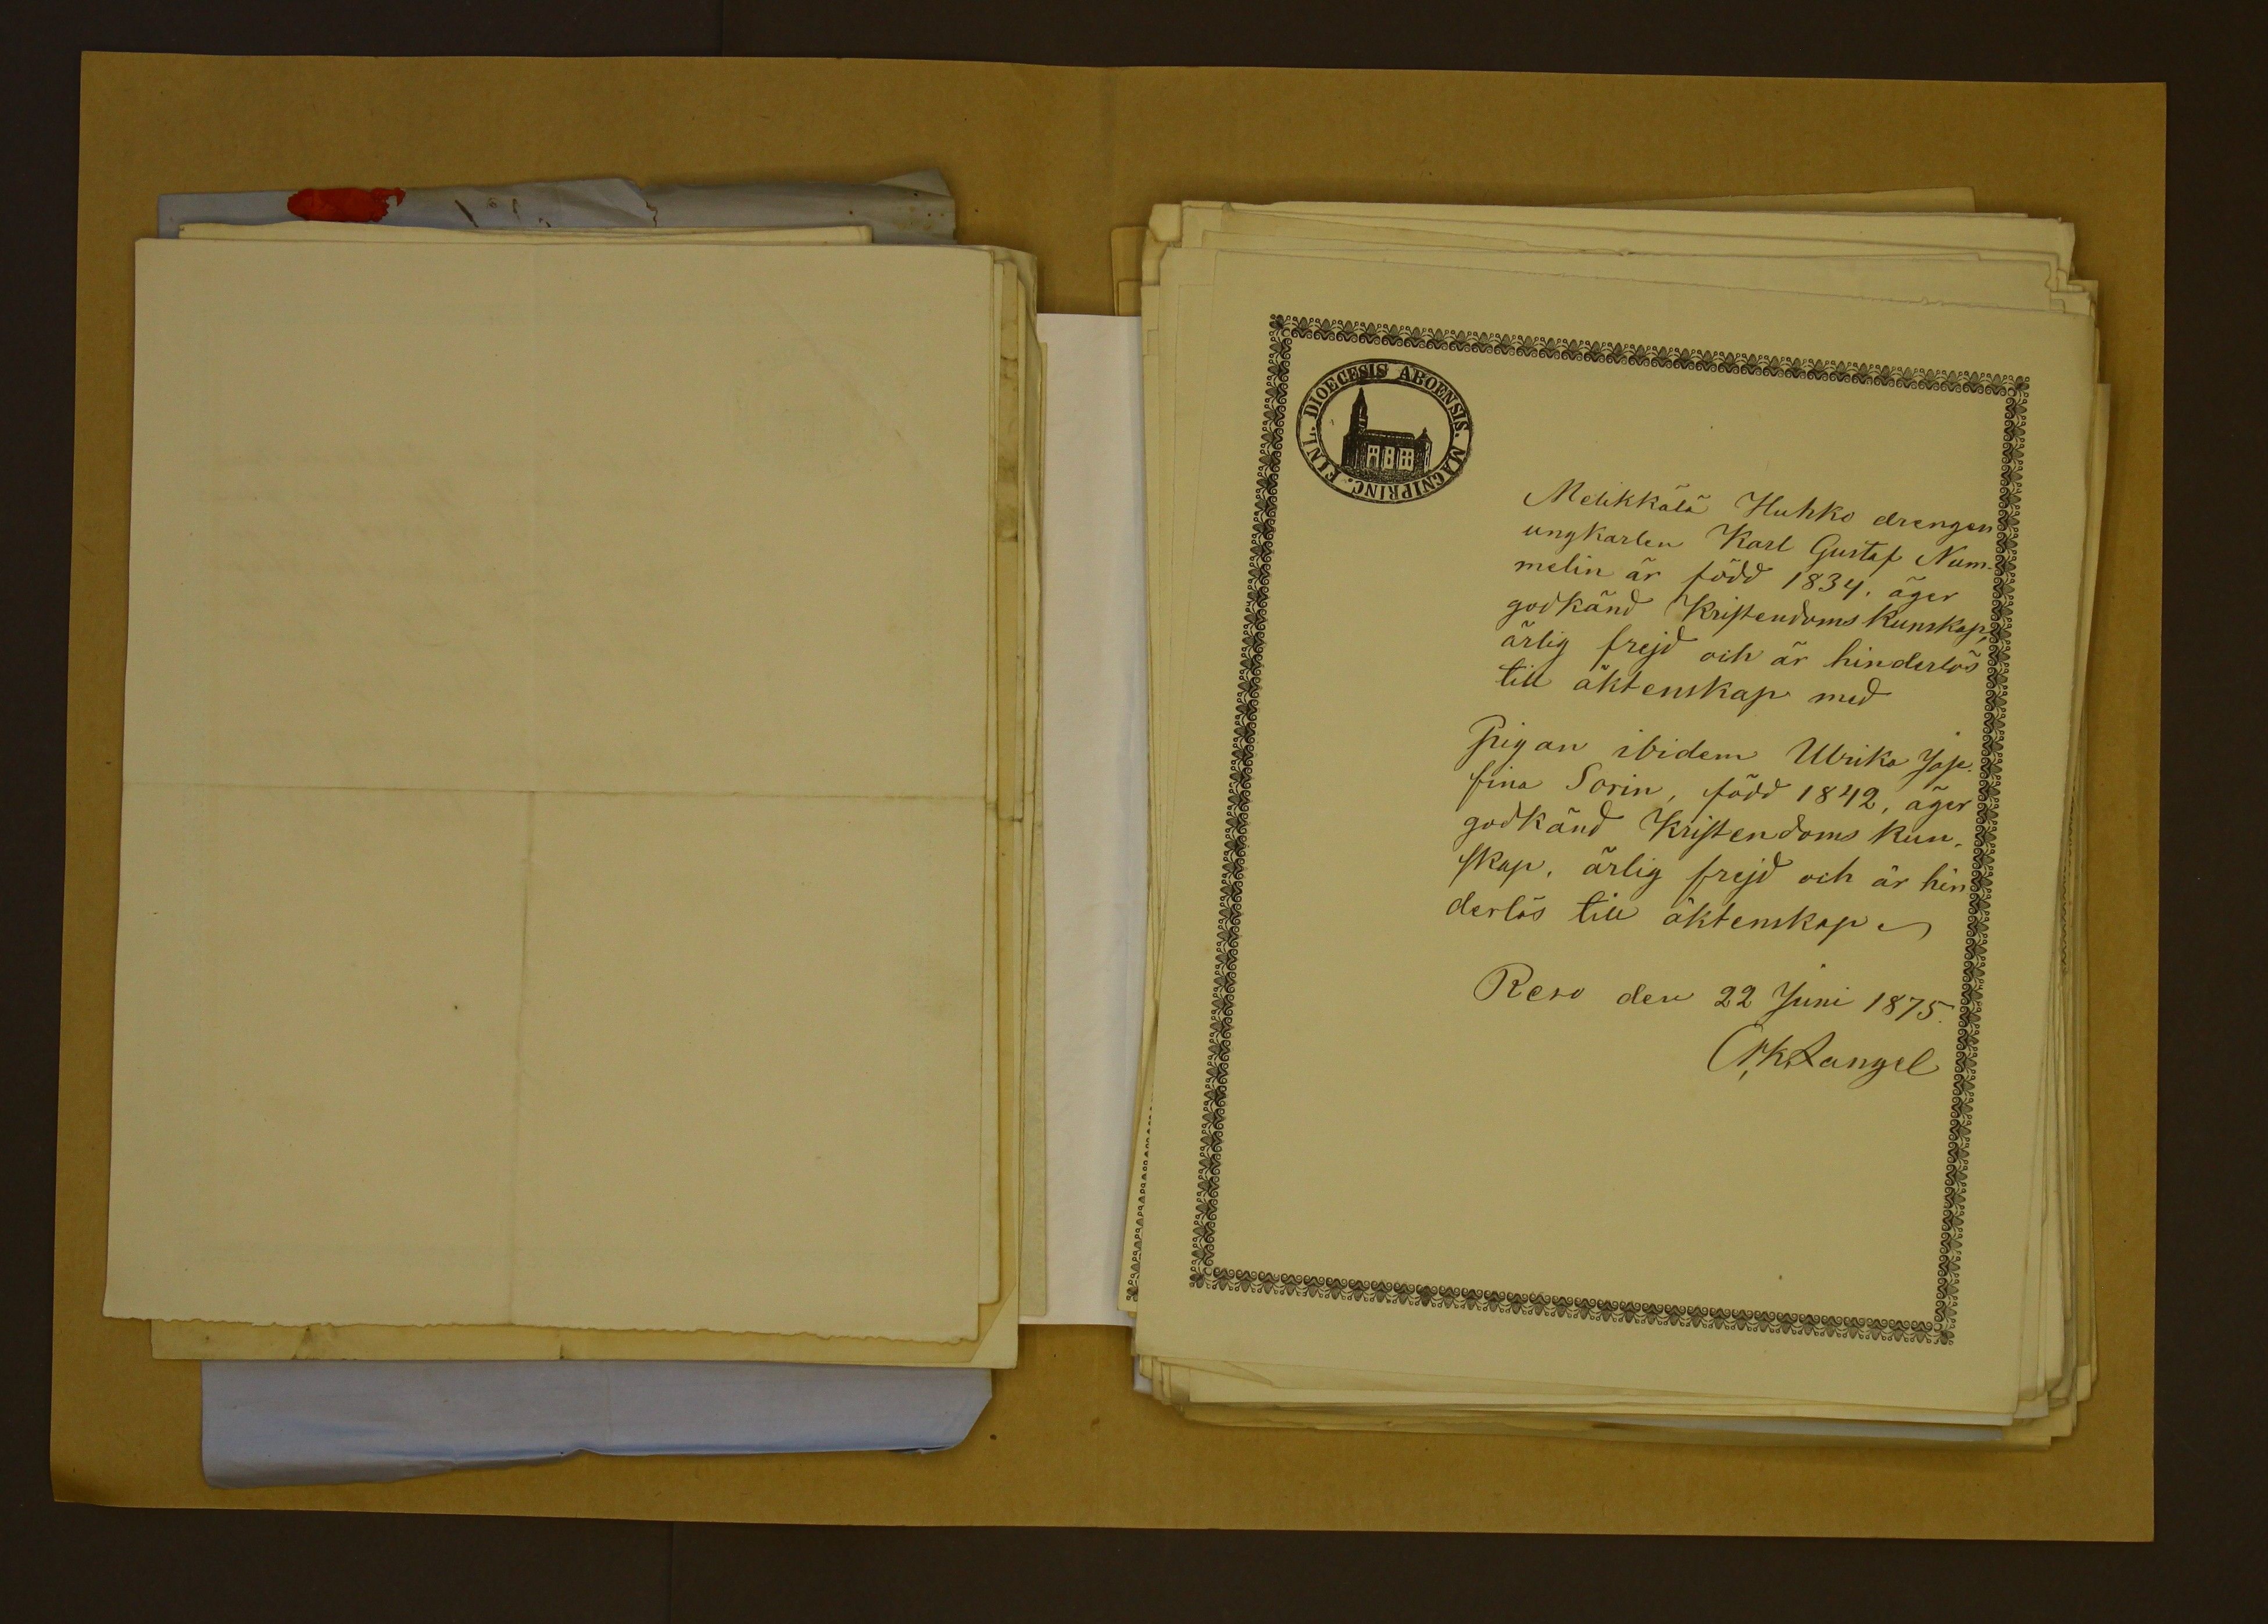 DIOECESIS ABOENSIS. MAGNIPRINC. FINL.
Melikkälä Huhko drengen
ungkarlen Karl Gustaf Num-
melin är född 1834, äger
godkänd Kristendoms Kunskap,
ärlig frejd och är hinderlös
till äktenskap med
Pigan ibidem Ulrika Jose-
fina Sorin, född 1842, äger
godkänd Kristendoms kun-
skap, ärlig frejd och är hin
derlös till äktenskap
Reso den 22 Juni 1875.
Langel